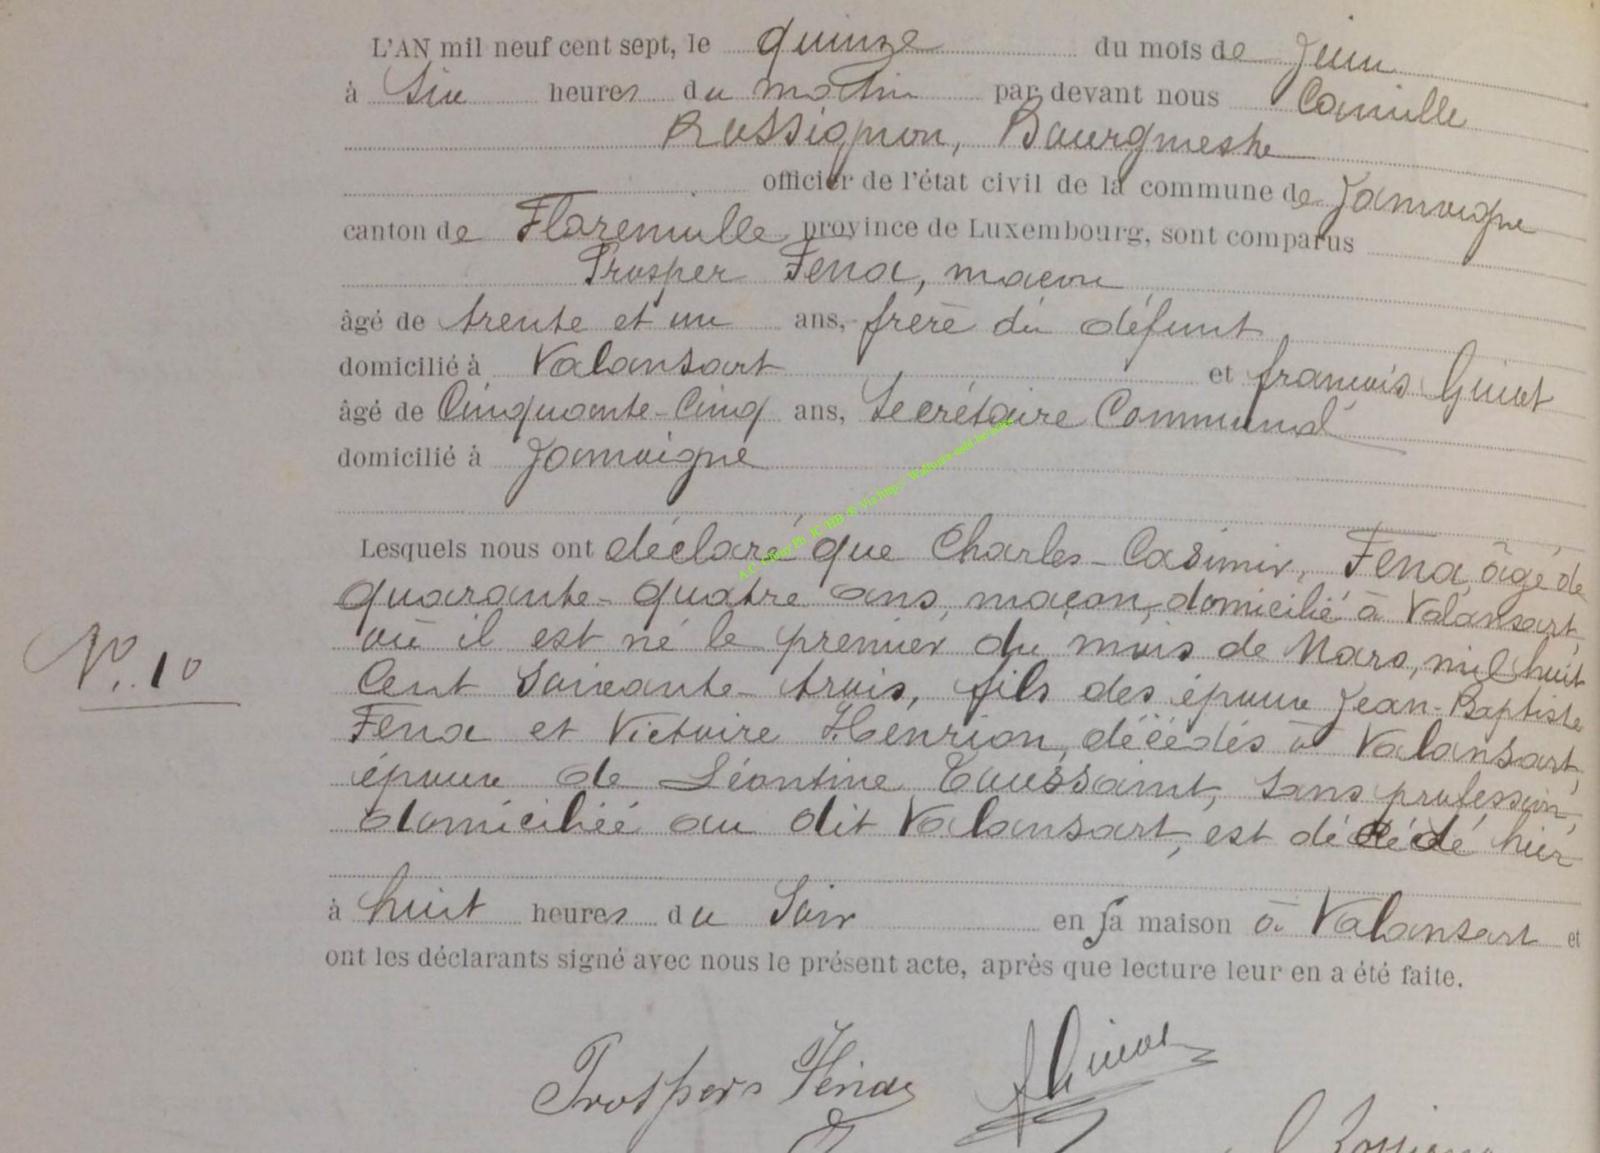 L'AN mil neuf cent sept, le quinze du mois de Juin
à Six heures du matin par devant nous Camille
Rossignon, Bourgmestre
officier de l'état civil de la commune de Jamoigne
canton de Florenville province de Luxembourg, sont comparus
Prosper Fena, maçon
âgé de trente et un ans, frère du défunt
domicilié à Valansart et françois Guiot
âgé de Cinquante-Cinq ans, Secrétaire Communal
domicilié à Jamoigne
Lesquels nous ont déclaré que Charles-Casimir, Fena, âgé de
quarante-quatre ans, maçon, domicilié à Valansart
où il est né le premier du mois de Mars, mil huit
Cent Soixante-trois, fils des époux Jean-Baptiste
Fena et Victoire Henrion, décédés à Valansart,
époux de Léontine Toussaint, Sans profession,
domiciliée au dit Valansart, est décédé hier
N°. 10
à huit heures du Soir en sa maison à Valansart et
ont les déclarants signé avec nous le présent acte, après que lecture leur en a été faite.
Prospère Féna